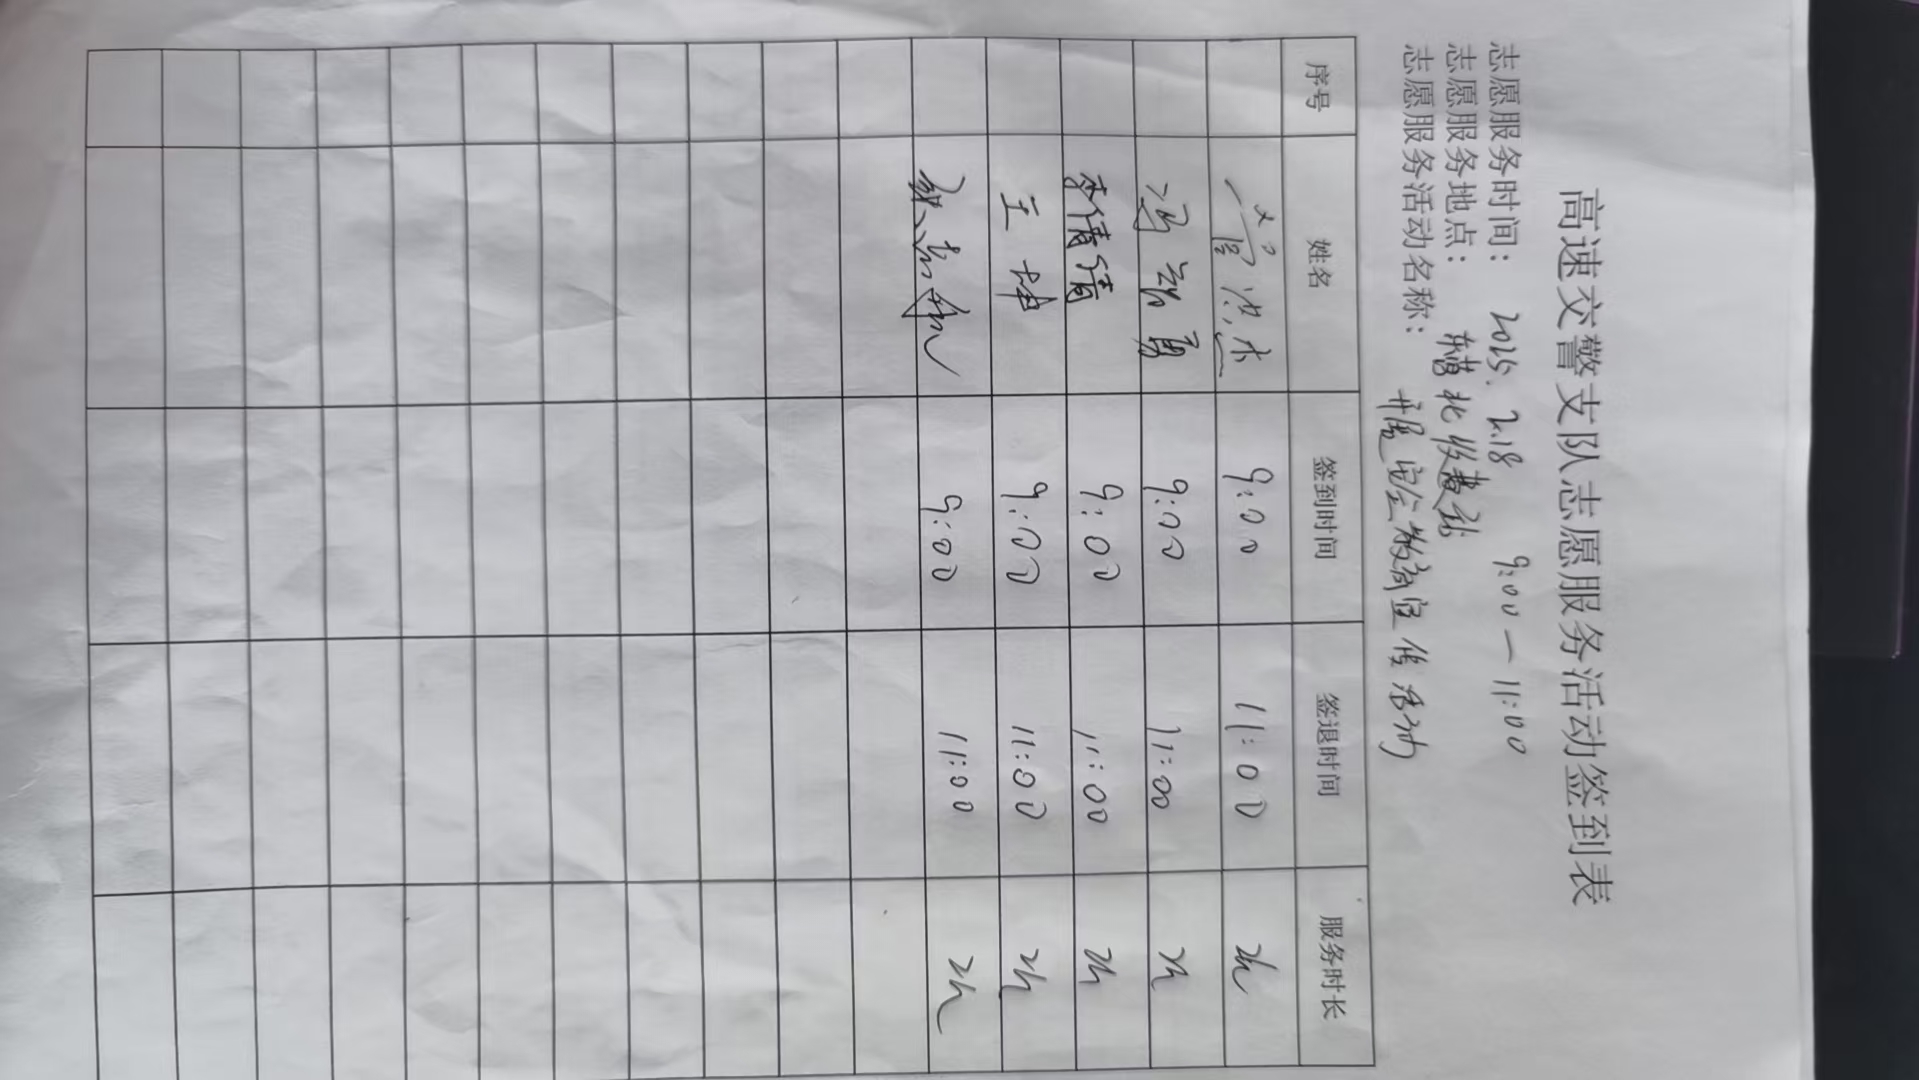 高速交警支队志愿服务活动签到表
志愿服务时间： 2025. 2.18 9:00 — 11:00
志愿服务地点： 北收费站
志愿服务活动名称： 开展安全教育宣传活动
序号 姓名 签到时间 签退时间 服务时长
9:00 11:00 2h
9:00 11:00 2h
李倩倩 9:00 11:00 2h
王坤 9:00 11:00 2h
9:00 11:00 2h